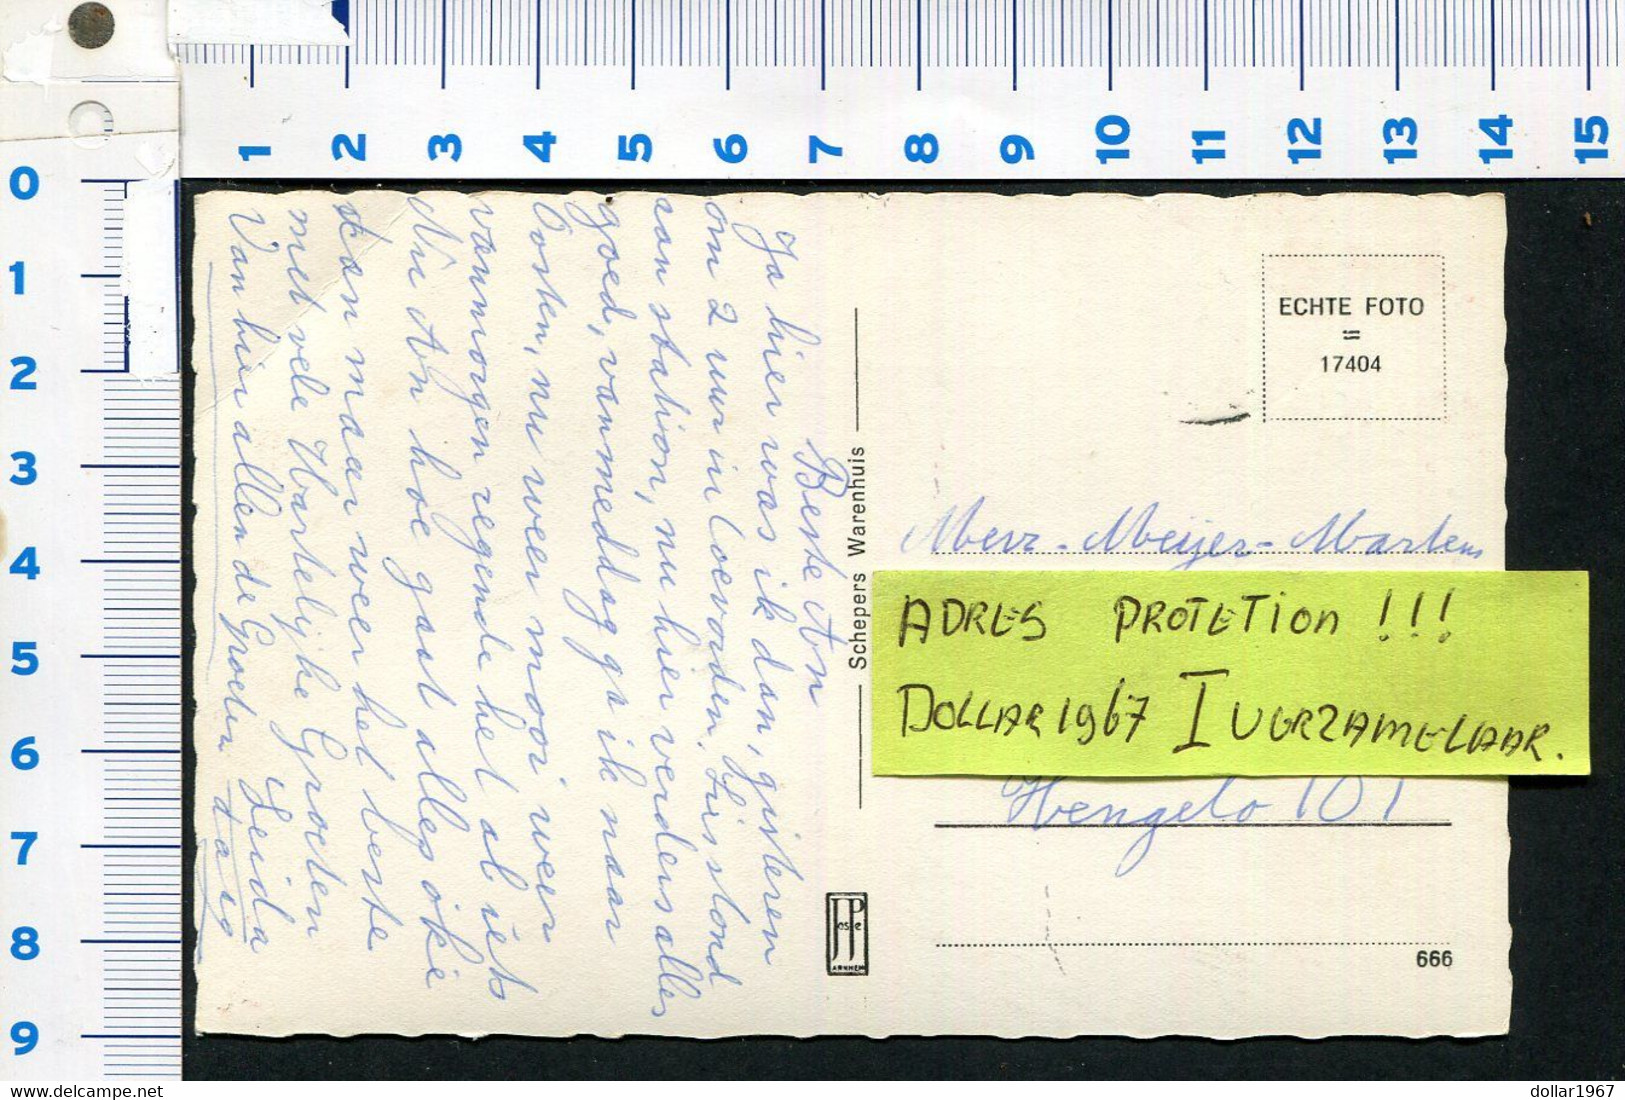 1 2 3 4 5 6 7 8 9 10 11 12 13 14 15
0
1
2
3
4
5
6
7
8
9
Beste An
Ja hier was ik dan, gisteren
om 2 uur in Coevorden. stond
aan station, nu hier verder is alles
goed, vanmeddag ga ik naar
Oosten, nu weer mooi weer
vanmorgen regende het al iets
Nu An hoe gaat alles oké
dan maar weer het beste
met vele Hartelijke Groeten
Leida
Van hier allen de Groeten
Schepers Warenhuis
JosPe
ARNHEM
ECHTE FOTO
=
17404
Mevr - Meijer - Martens
ADRES PROTETION !!!
DOLLAR 1967 I VERZAMELAAR.
Hengelo (O)
666
delcampe.net
dollar1967